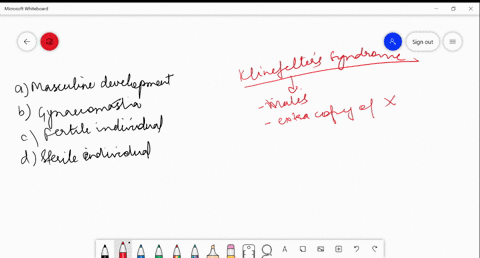 Microsoft Whiteboard
Sign out
a) Masculine development
b) Gynaecomastia
c) Fertile individual
d) Sterile individual
Klinefelter's Syndrome
- Males
- extra copy of X